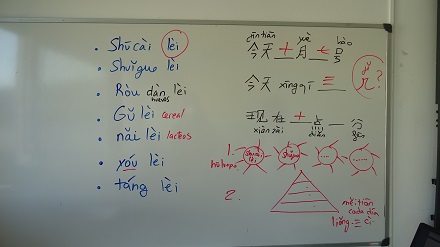 Shūcài lèi
Shuǐguǒ lèi
Ròu dàn lèi
huevos
Gǔ lèi cereal
nǎi lèi lacteos
yóu lèi
táng lèi
jīntiān yuè hào
今天十月七号
今天 xīngqī 三
jǐ
几?
现在十点分
xiànzài diǎn fēn
1.
2.
měitiān
cada día